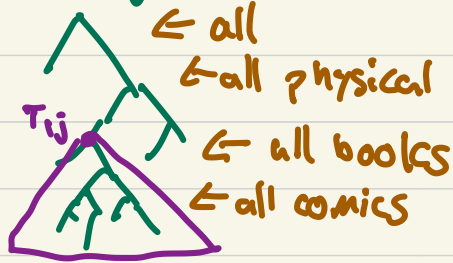 ← all
← all physical
τij
← all books
← all comics